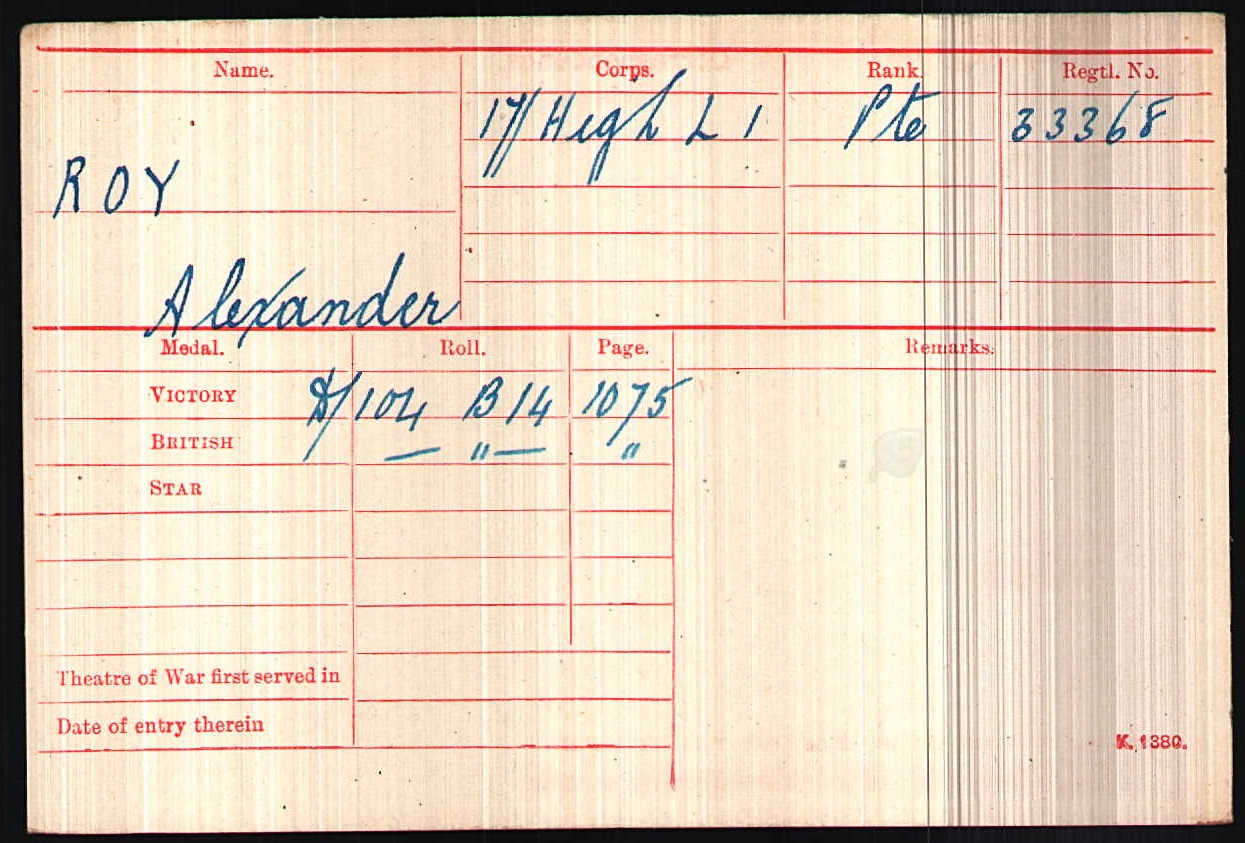 Name. Corps. Rank. Regtl. No.
17/High L I Pte 33368
ROY
Alexander
Medal. Roll. Page. Remarks.
VICTORY 104 B14 1075
BRITISH — " — "
STAR
Theatre of War first served in
Date of entry therein
K. 1380.